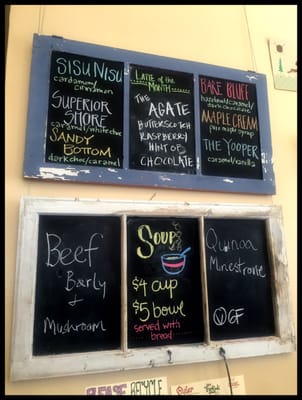 SISU NISU
cardamom/
cinnamon
SUPERIOR
SMORE
caramel/white choc
SANDY
BOTTOM
dark choc/caramel
LATTE of the
MONTH
THE
AGATE
BUTTERSCOTCH
RASPBERRY
HINT OF
CHOCOLATE
BARE BLUFF
hazelnut/caramel/
dark chocolate
MAPLE CREAM
pure maple syrup
THE YOOPER
caramel/vanilla
Beef
Barly
&
Mushroom
SOUP
$4 cup
$5 bowl
served with
bread
Quinoa
Minestrone
V GF
RECYCLE